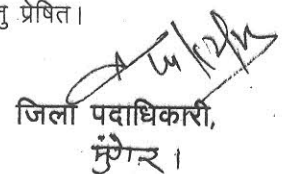 तु प्रेषित।
जिला पदाधिकारी,
मुंगेर।